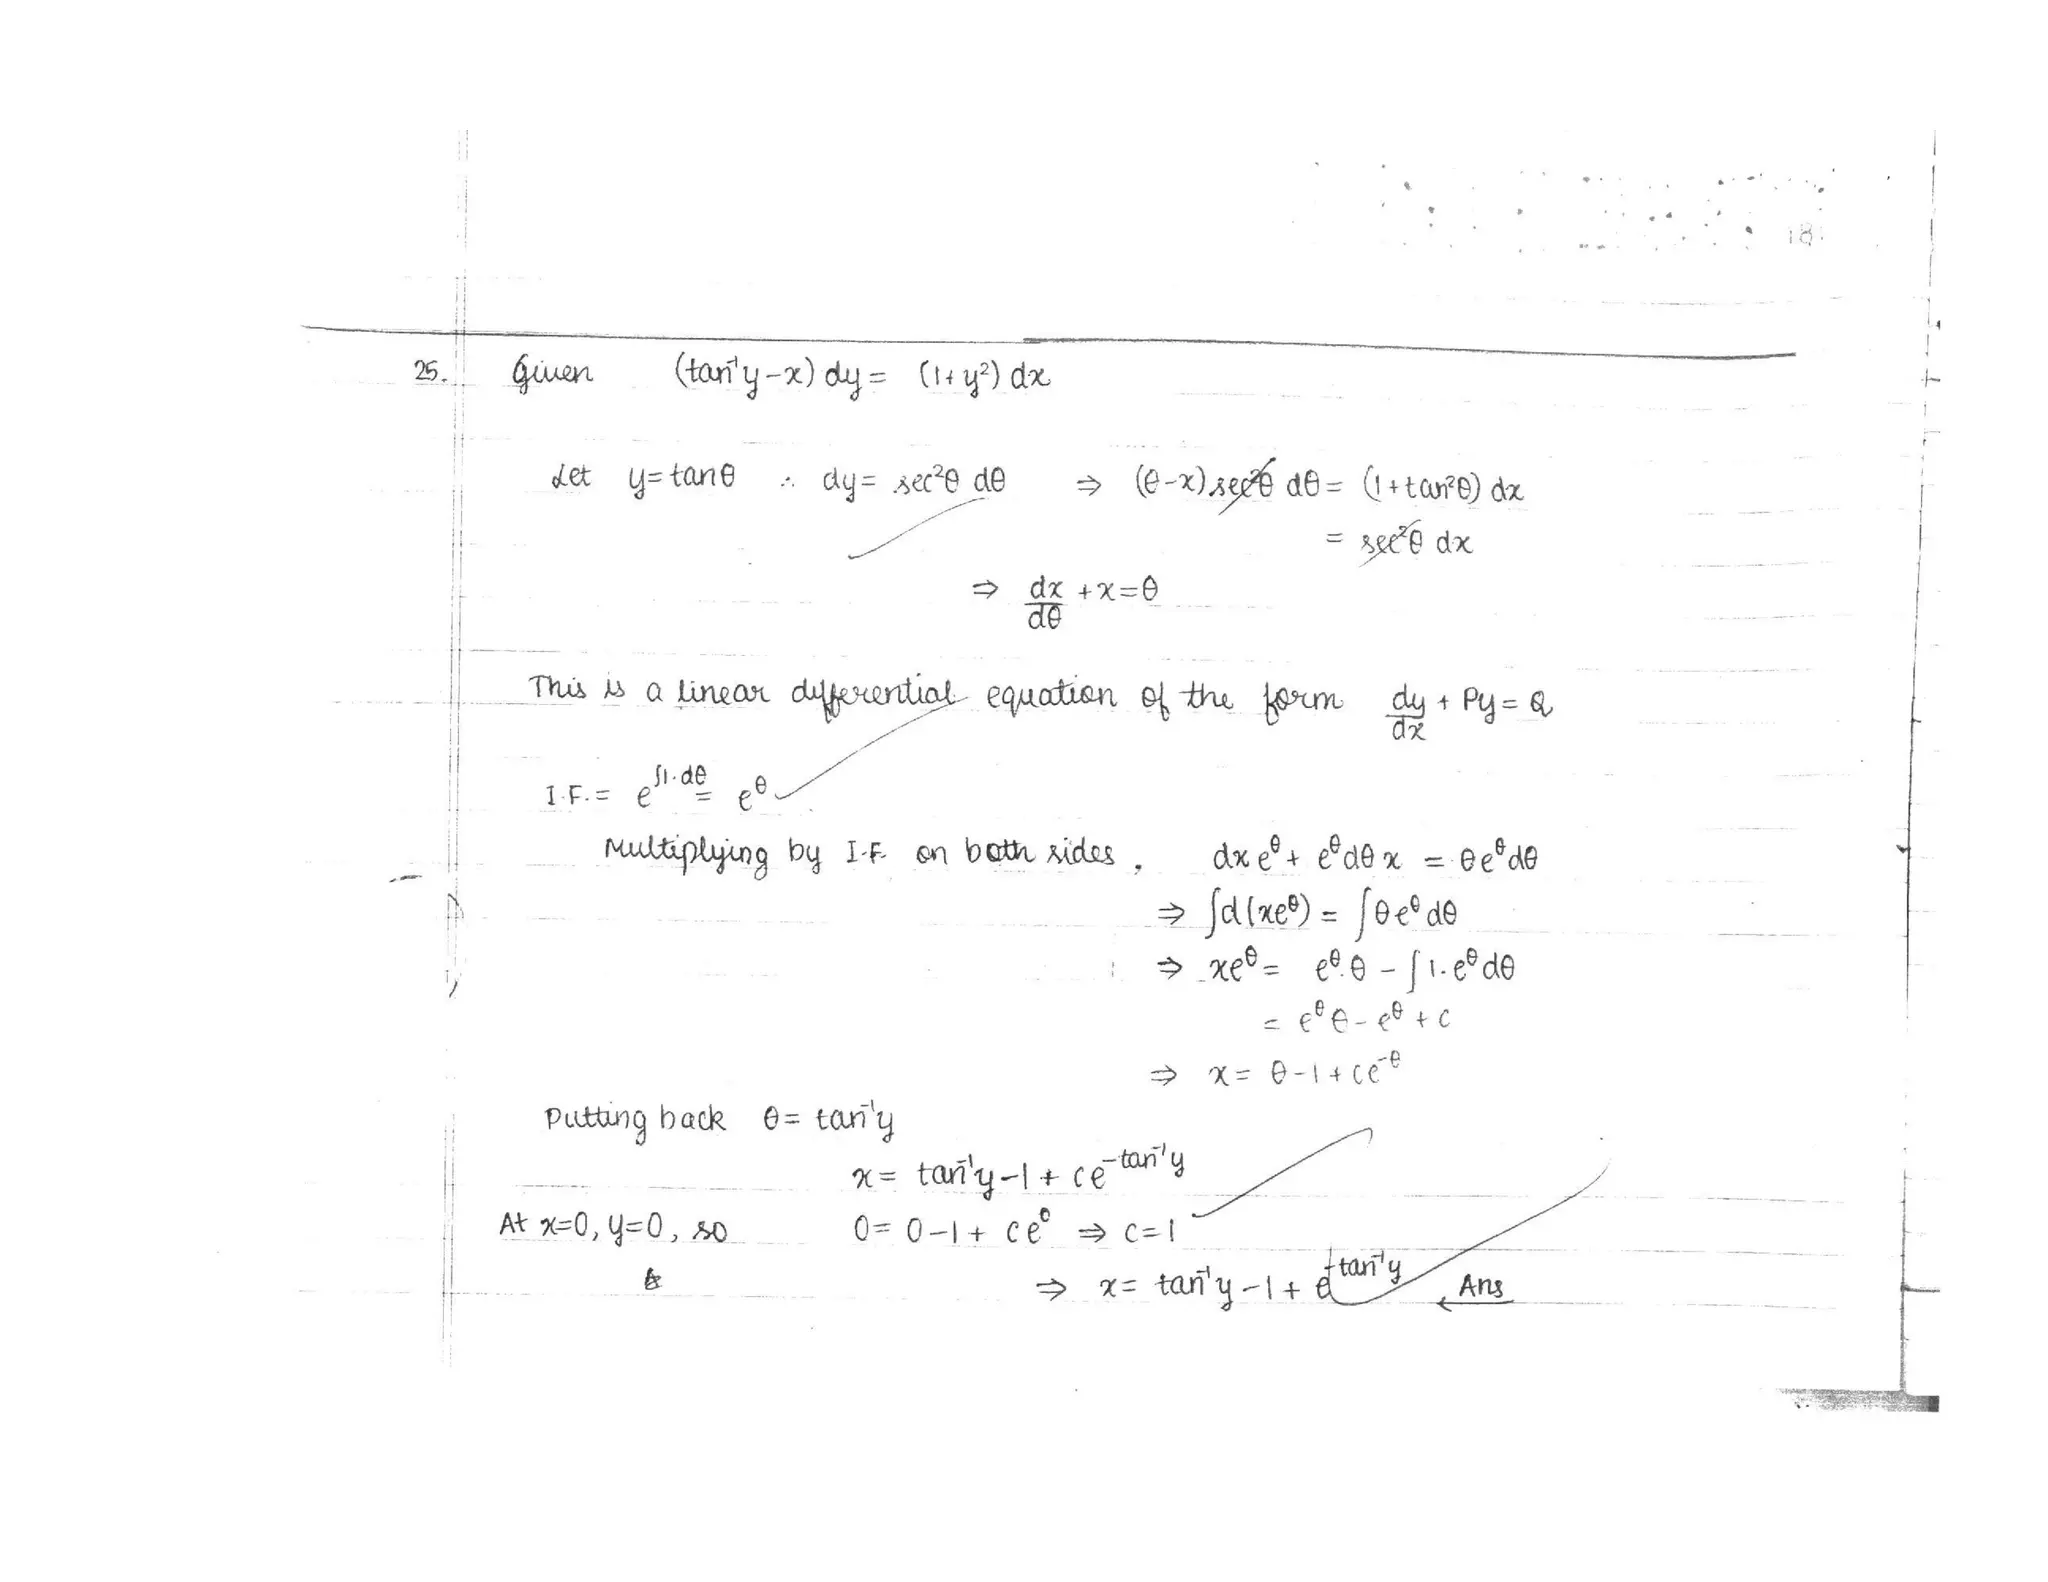 18
25. Given (tan⁻¹y-x) dy = (1+y²) dx
Let y=tanθ ∴ dy = sec²θ dθ ⇒ (θ-x) sec²θ dθ = (1+tan²θ) dx
= sec²θ dx
⇒ dx/dθ + x = θ
This is a linear differential equation of the form dy/dx + Py = Q
I.F. = e^∫1.dθ = e^θ
Multiplying by I.F. on both sides, dx e^θ + e^θ dθ x = θe^θ dθ
⇒ ∫d(xe^θ) = ∫θe^θ dθ
⇒ xe^θ = e^θ.θ - ∫1.e^θ dθ
= e^θ θ - e^θ + c
⇒ x = θ-1+ce^-θ
Putting back θ = tan⁻¹y
x = tan⁻¹y-1 + ce^-tan⁻¹y
At x=0, y=0, so 0 = 0-1+ ce⁰ ⇒ c=1
⇒ x = tan⁻¹y-1+ e^-tan⁻¹y Ans